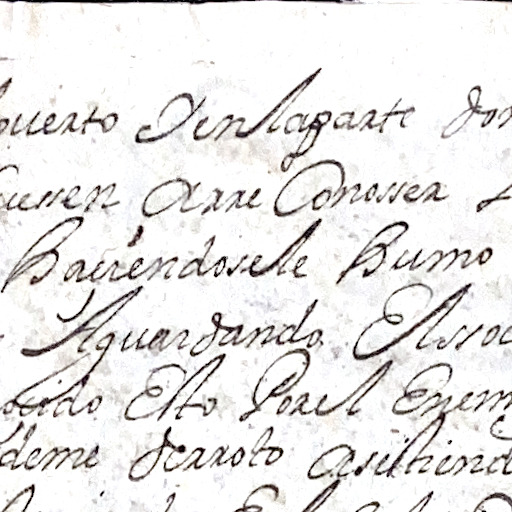 puerto Yenlaparte don
uessen Arre Conosser
Haciendosele Humo
Aguardando El soc
ocido Esto Porel Enem
deme derroto asistiend